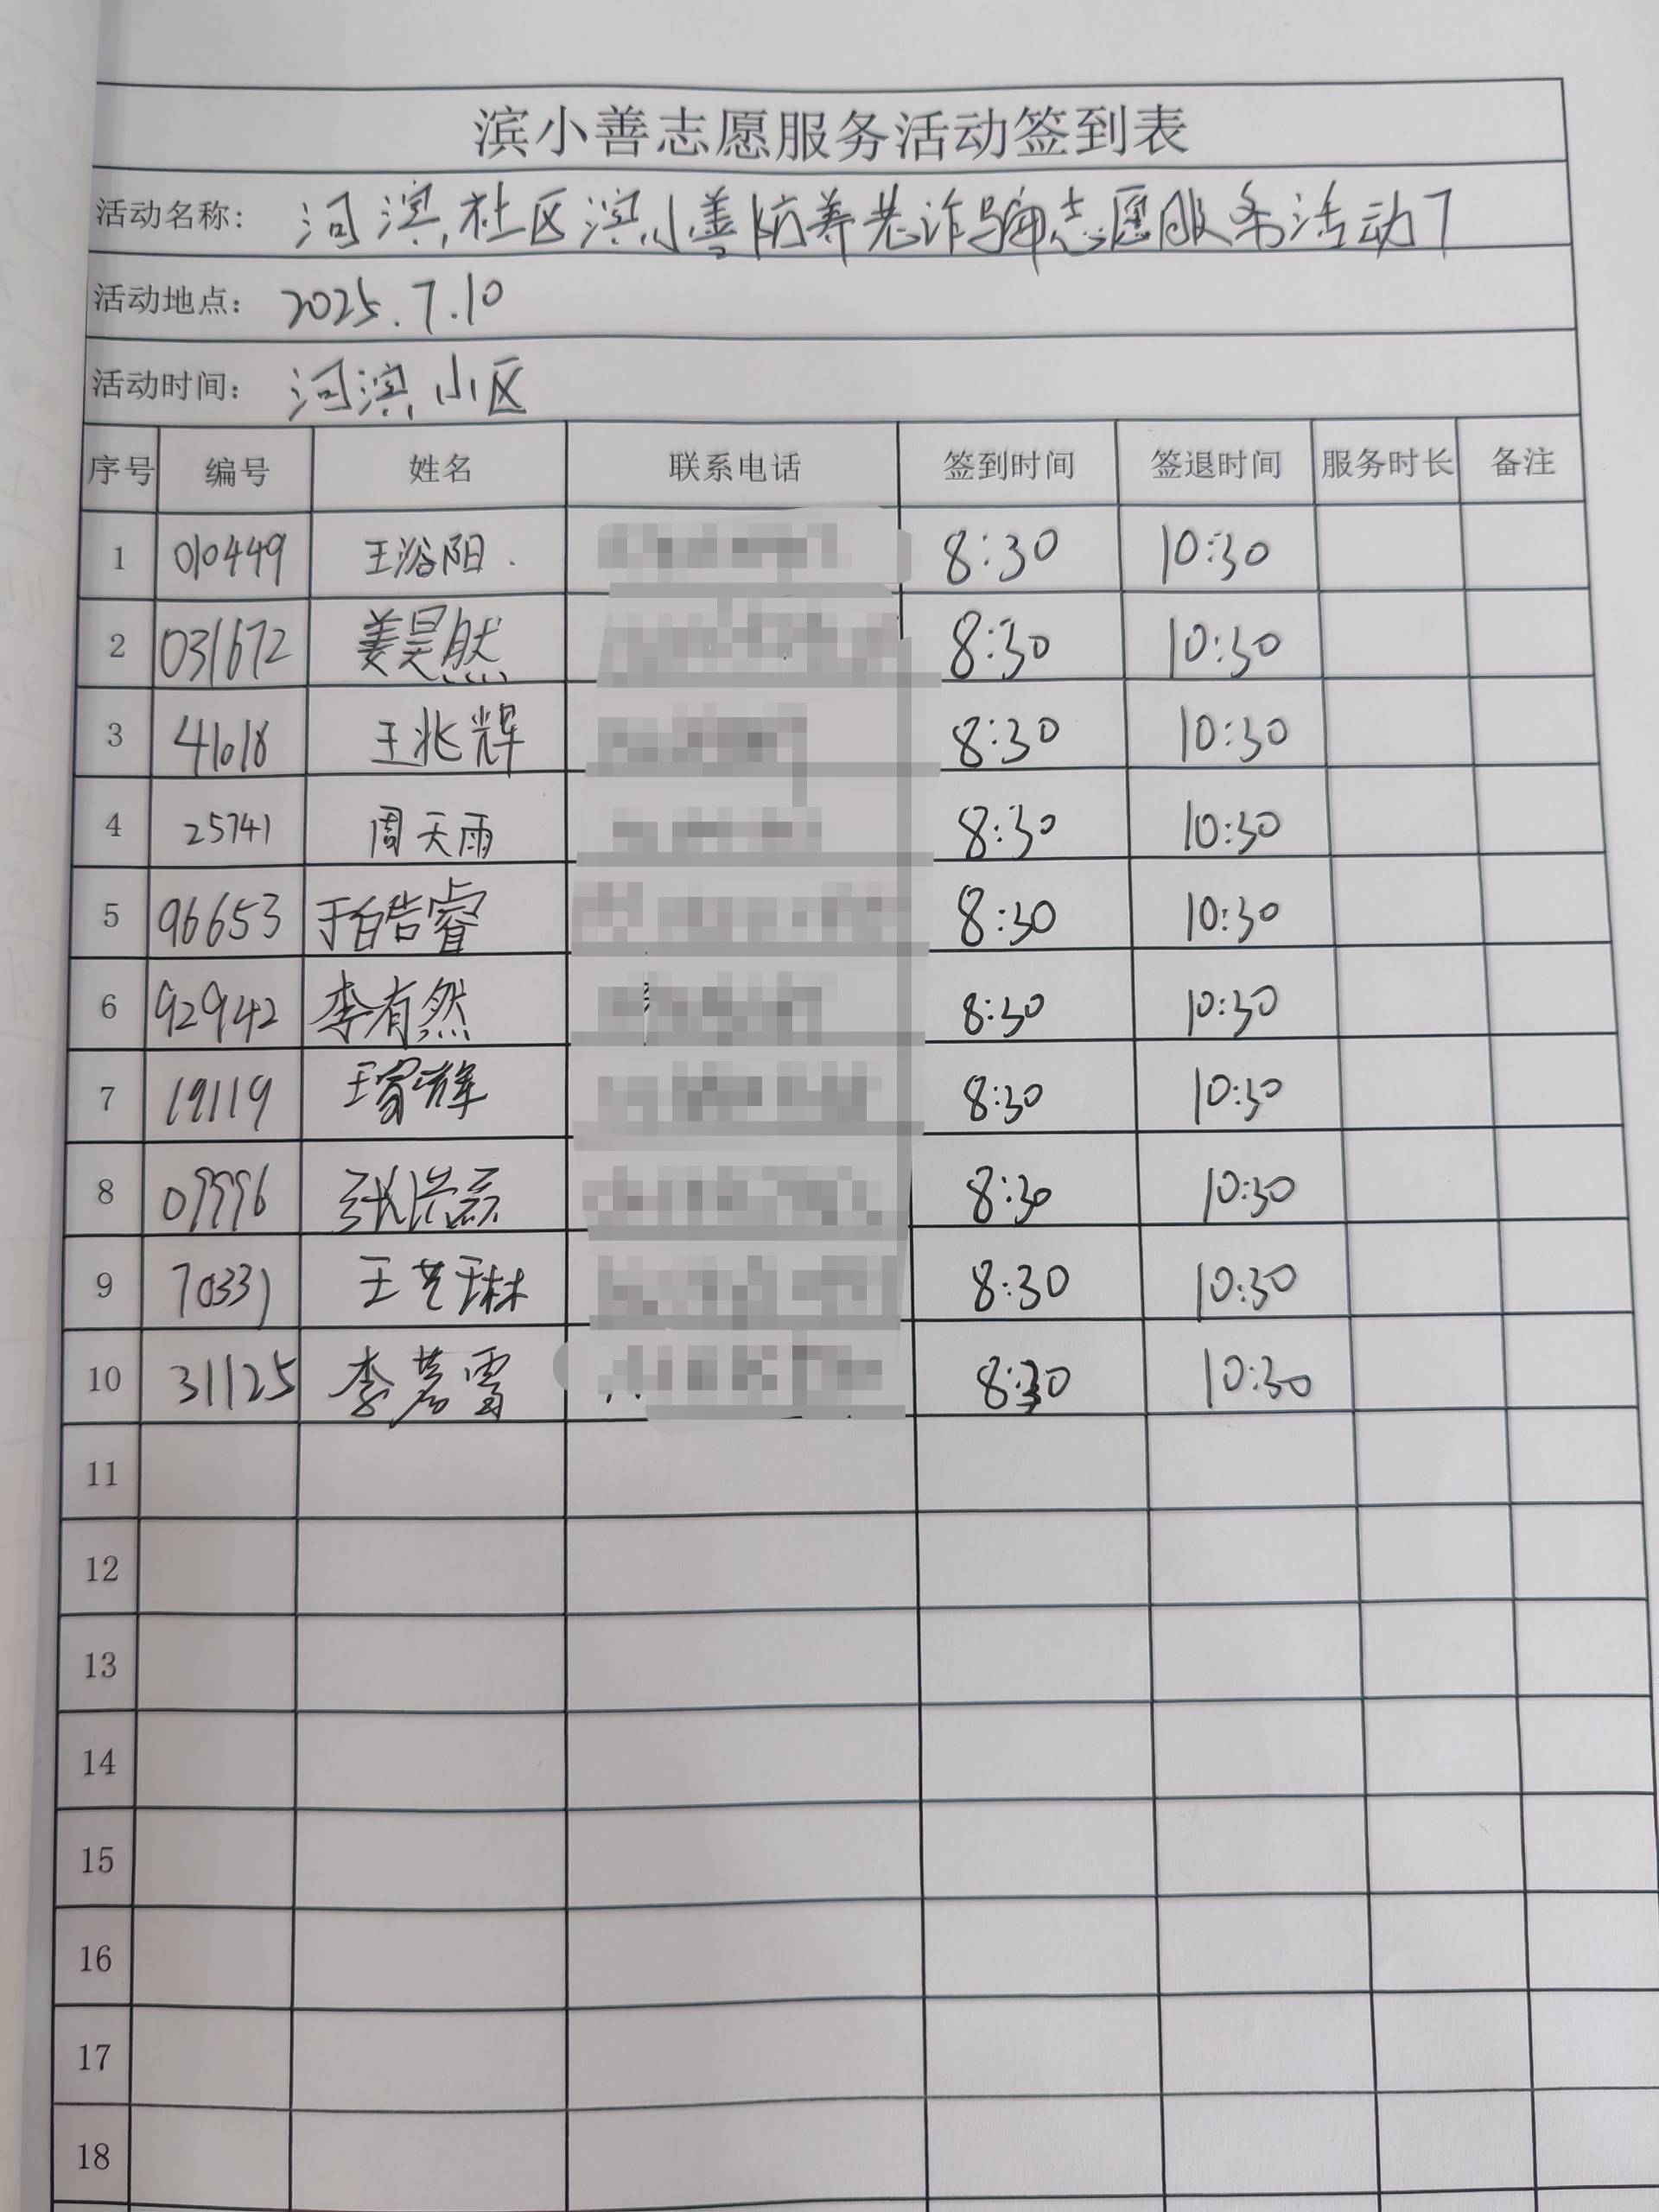 滨小善志愿服务活动签到表
活动名称: 河滨社区滨小善防养老诈骗志愿服务活动7
活动地点: 2025.7.10
活动时间: 河滨小区
序号 编号 姓名 联系电话 签到时间 签退时间 服务时长 备注
1 010449 王浴阳 8:30 10:30
2 031672 姜昊然 8:30 10:30
3 41018 王兆辉 8:30 10:30
4 25741 周天雨 8:30 10:30
5 96653 于皓睿 8:30 10:30
6 92942 李有然 8:30 10:30
7 19119 8:30 10:30
8 09996 张洪磊 8:30 10:30
9 70331 王艺琳 8:30 10:30
10 31125 李茗雪 8:30 10:30
11
12
13
14
15
16
17
18